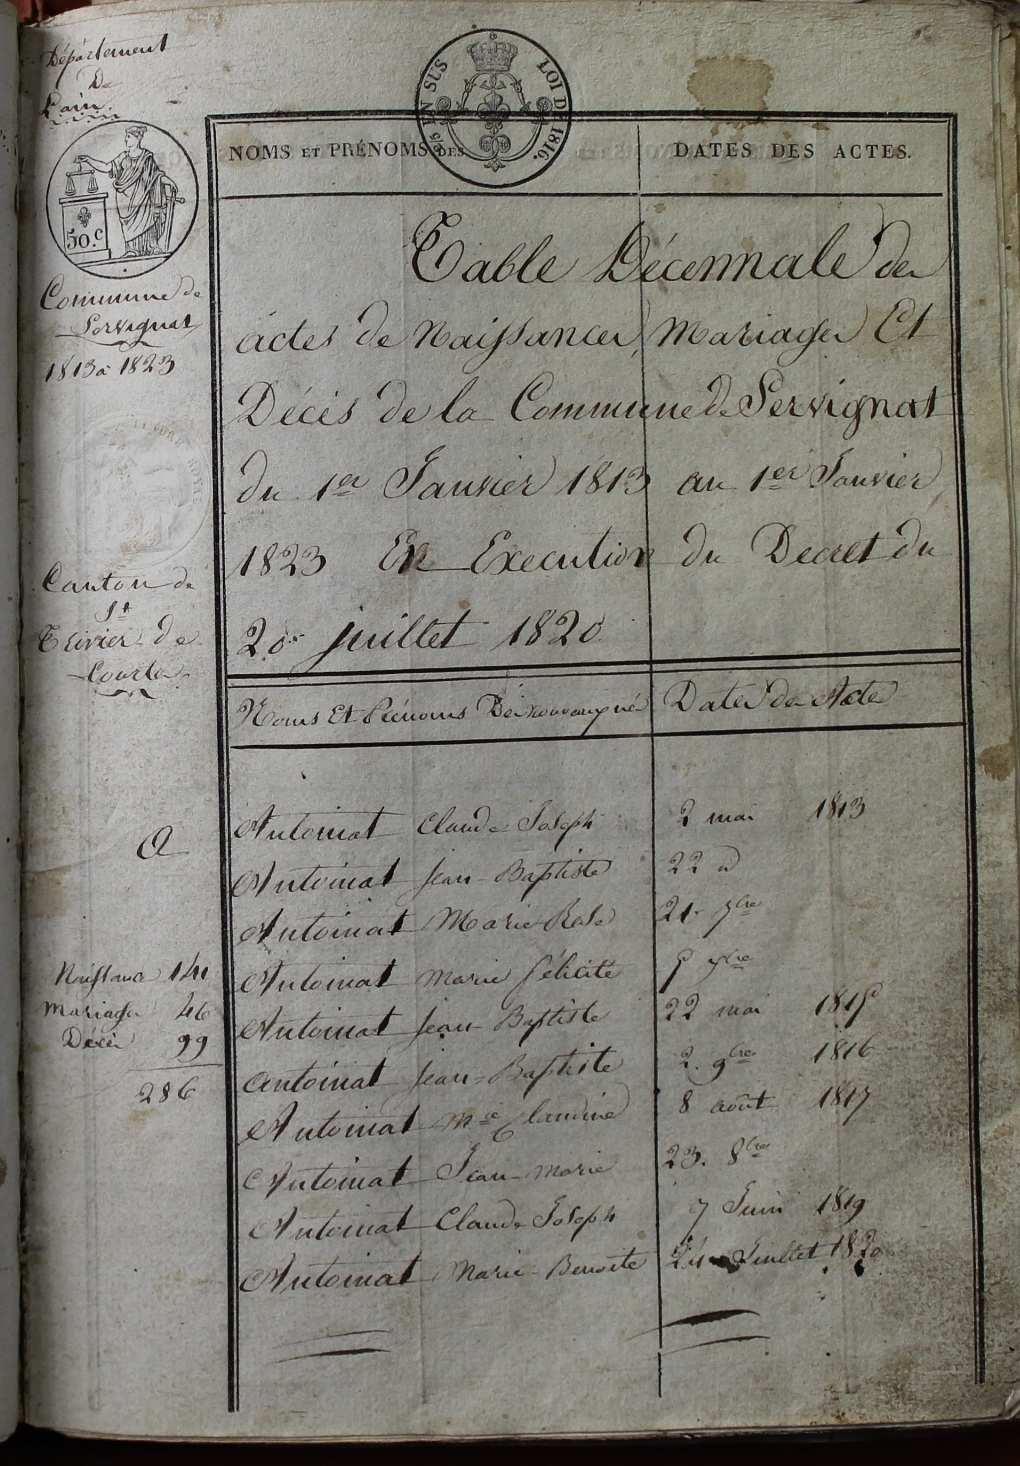 Département
De
L'ain
50.c
EN SUS
LOI DE 1816.
NOMS ET PRÉNOMS DES
DATES DES ACTES.
Commune de
Servignat
1813 a 1823
Canton de
St
Trivier de
Courtes
Table Décennale des
actes de Naissances, Mariages Et
Décès de la Commune de Servignat
du 1er Janvier 1813 au 1er Janvier
1823 En Execution du Decret du
20 juillet 1820
Noms Et Prénoms Des nouveaux nés
Dates des Actes
A
Antoinat Claude Joseph 2 mai 1813
Antoinat Jean-Baptiste 22 d
Antoinat Marie Rose 21. 7bre
Antoinat Marie félicité 9bre
Antoinat Jean Baptiste 22 mai 1815
antoinat Jean-Baptiste 2. 9bre 1816
Antoinat Mie Claudine 8 août 1817
Antoinat Jean-marie 23. 8bre
Antoinat Claude Joseph 7 Juin 1819
Antoinat Marie-Benoite 24 Juillet 1820
Naissance 141
Mariages 46
Décès 99
286